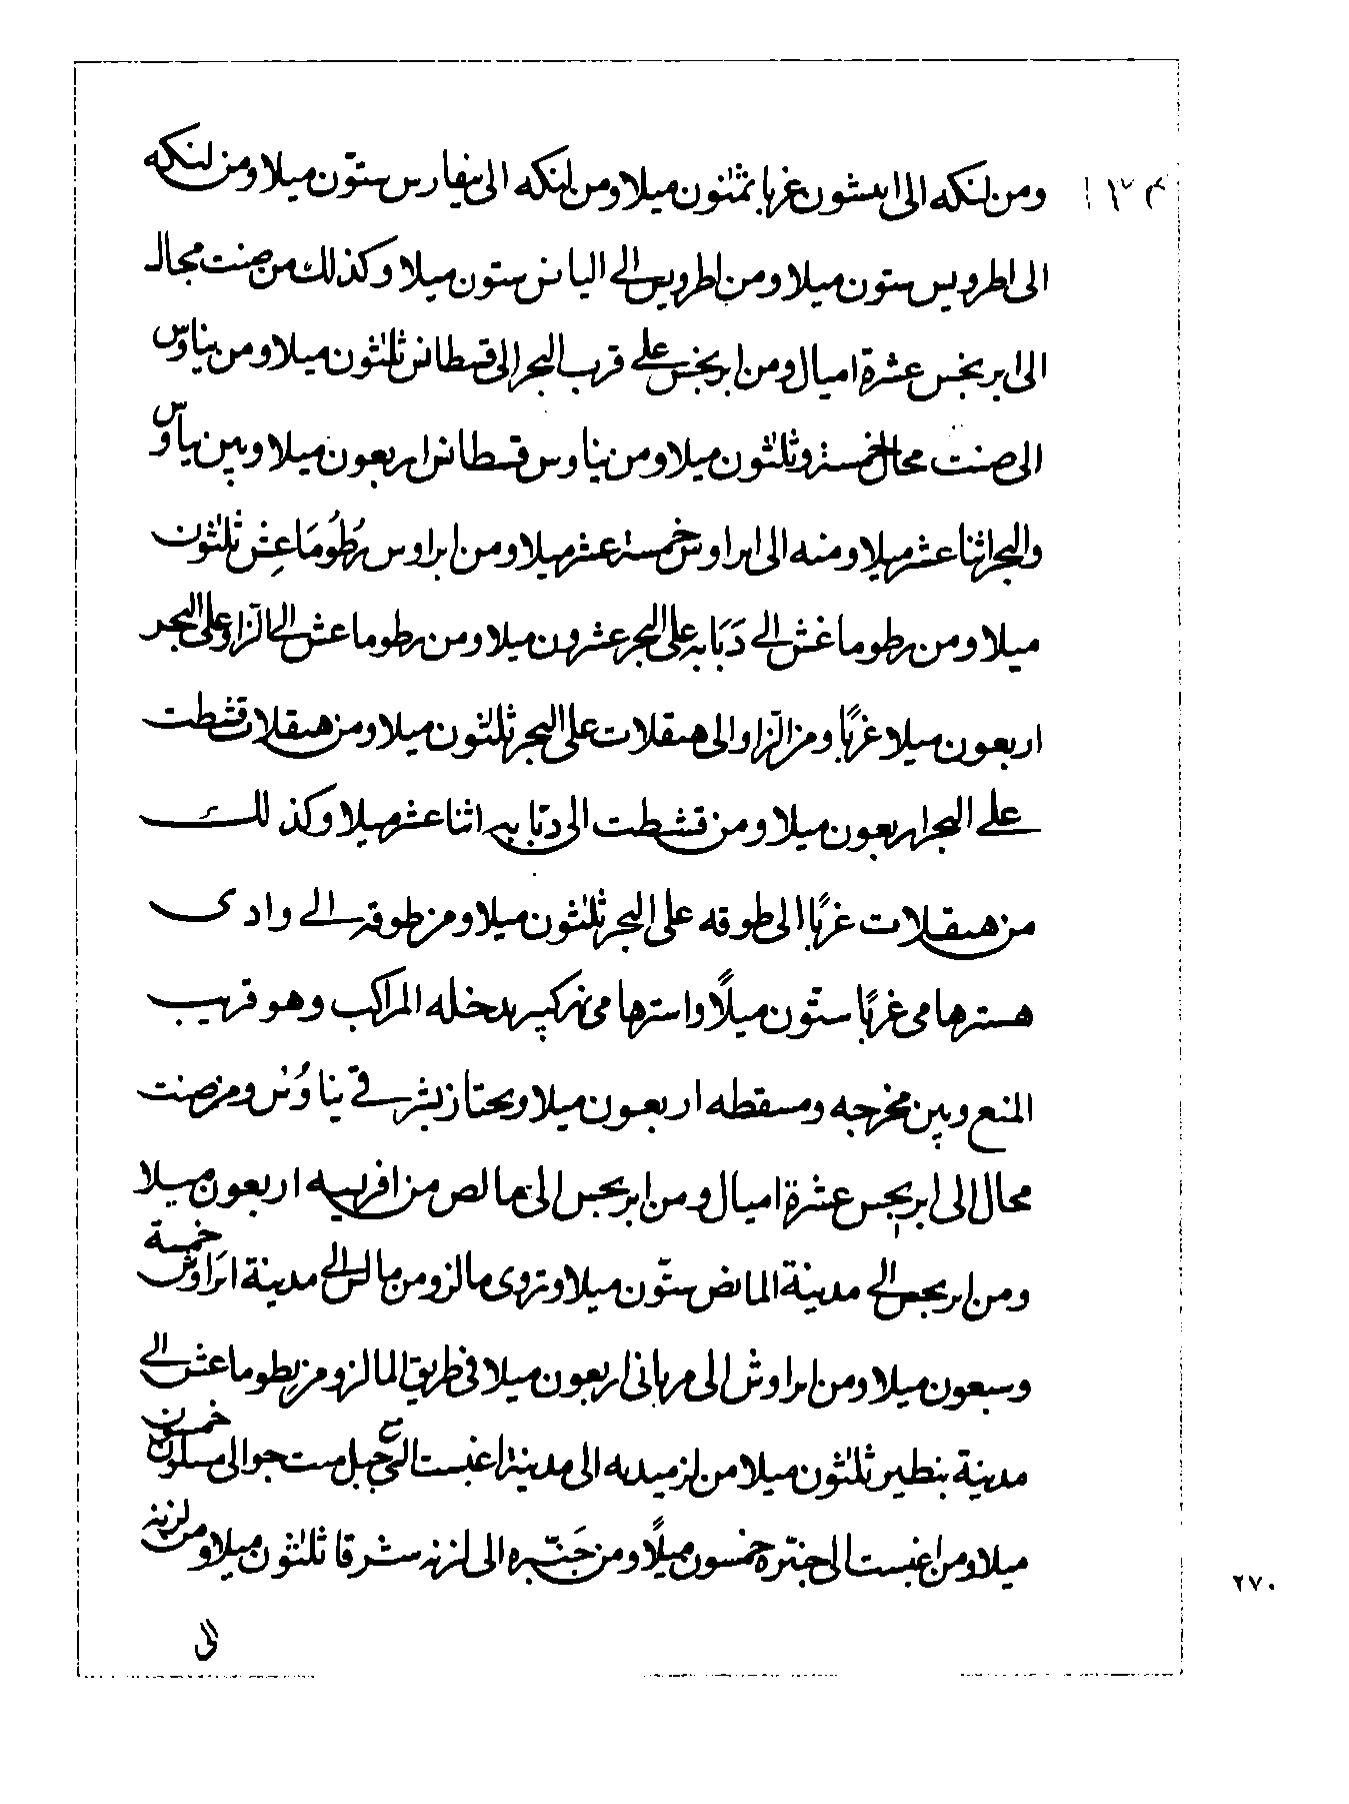 ومن لنكه الى ابسشون غربا ثمٰنون ميلا ومن لنكه الى بنفارس ستّون ميلا ومن لنكه
الى اطرويس ستون ميلا ومن اطرويس الى الياس ستون ميلا وكذلك من صنت مجال
الى ابرنجس عشرة اميال ومن ابرنجس على قرب البحر الى قسطانس ثلٰثون ميلا ومن بناوس
الى صنت محال خمسة وثلٰثون ميلا ومن بناوس قسطانس اربعون ميلا وبين بياوس
والبحر اثنا عشر ميلا ومنه الى ابراوس خمسة عشر ميلا ومن ابراوس بُطُومَاعِش ثلٰثون
ميلا ومن بطوماغش الى دَبَابه على البحر عشرون ميلا ومن بطوماعش الى الزّاو على البحر
اربعون ميلا غربًا ومن الزّاو الى هنقلات على البحر ثلٰثون ميلا ومن هنقلات قشطت
على البحر اربعون ميلا ومن قشطت الى دبّابيه اثنا عشر ميلا وكذلك
من هنقلات غربًا الى طوقه على البحر ثلٰثون ميلا ومن طوقه الى وادى
هسترهامى غربًا ستّون ميلًا واسترهامى نهر كبير يدخله المراكب وهو قريب
المنبع وبين مخرجه ومسقطه اربعون ميلا ويجتاز بشرقى بناوُس ومن صنت
محال الى ابربجس عشرة اميال ومن ابربجس الى مالص من افريبيه اربعون ميلا
ومن ابربجس الى مدينة المانص ستّون ميلا وتروى مالز ومن مالس الى مدينة ابَراوش خمسة
وسبعون ميلا ومن ابراوش الى مربانى اربعون ميلا فى طريق المالز ومن بطوماعش الى
مدينة بنطير ثلٰثون ميلا من لزميديه الى مدينة اغنست الى ع جبل مست جوالى مسلون خمسون
ميلا ومن اغنست الى جنبّره خمسون ميلًا ومن جَنبّره الى لزنه شرقا ثلٰثون ميلا ومن لزنه
الى
١٣٤
٢٧٠